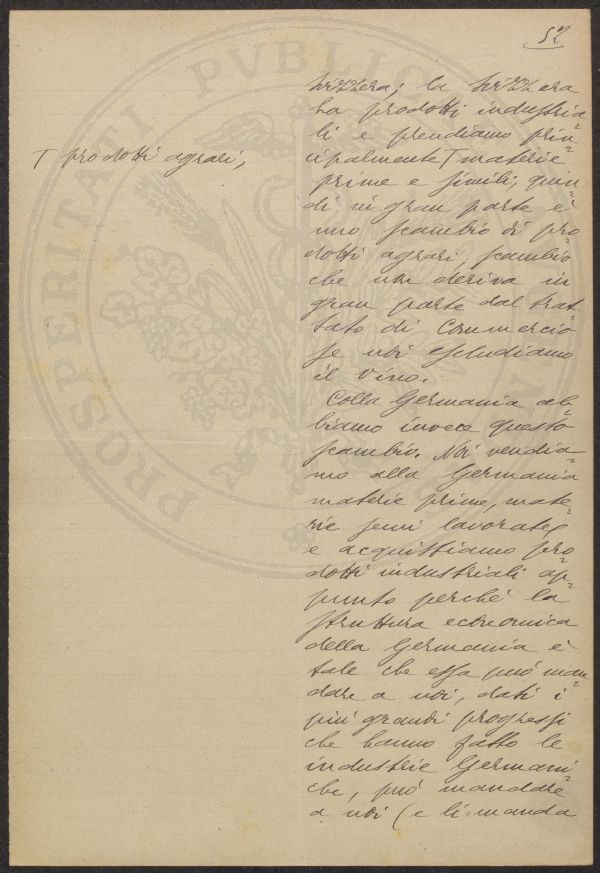 52
Svizzera; la Svizzera
ha prodotti industria=
li e prendiamo prin=
cipalmente T materie
T prodotti agrari,
prime e simili, quin=
di in gran parte è
uno scambio di pro=
dotti agrari, scambio
che non deriva in
gran parte dal trat=
tato di Commercio
se noi escludiamo
il vino.
Colla Germania ab=
biamo invece questo
scambio. Noi vendia=
mo alla Germania
materie prime, mate=
rie semi lavorate,
e acquistiamo pro=
dotti industriali ap=
punto perchè la
struttura economica
della Germania è
tale che essa può man=
dare a noi, dati i
più grandi progressi
che hanno fatto le
industrie Germani=
che, può mandare
a noi (e li manda
PROSPERITATI PVBLICAE